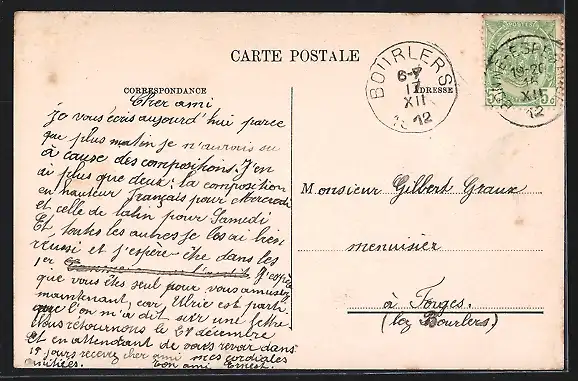 CARTE POSTALE
CORRESPONDANCE
ADRESSE
BOURLERS
6-7
17
XII
1912
19-20
XII
12
5c
Cher ami
Je vous écris aujourd'hui parce
que plus matin je n'aurais su
à cause des compositions. J'en
ai plus que deux; la composition
en hauteur français pour Mercredi
et celle de latin pour Samedi
Et, toutes les autres je les ai bien
réussi et j'espère être dans les
1er J'espère
que vous êtes seul pour vous amusez
maintenant, car, Ulric est parti
que l'on m'a dit sur une lettre.
Nous retournons le 28 décembre
et en attendant de vous revoir dans
15 jours recevez cher ami mes cordiales
amitiées. Ton ami Ernest.
Monsieur Gilbert Graux
menuisier
à Forges.
(lez Bourlers)